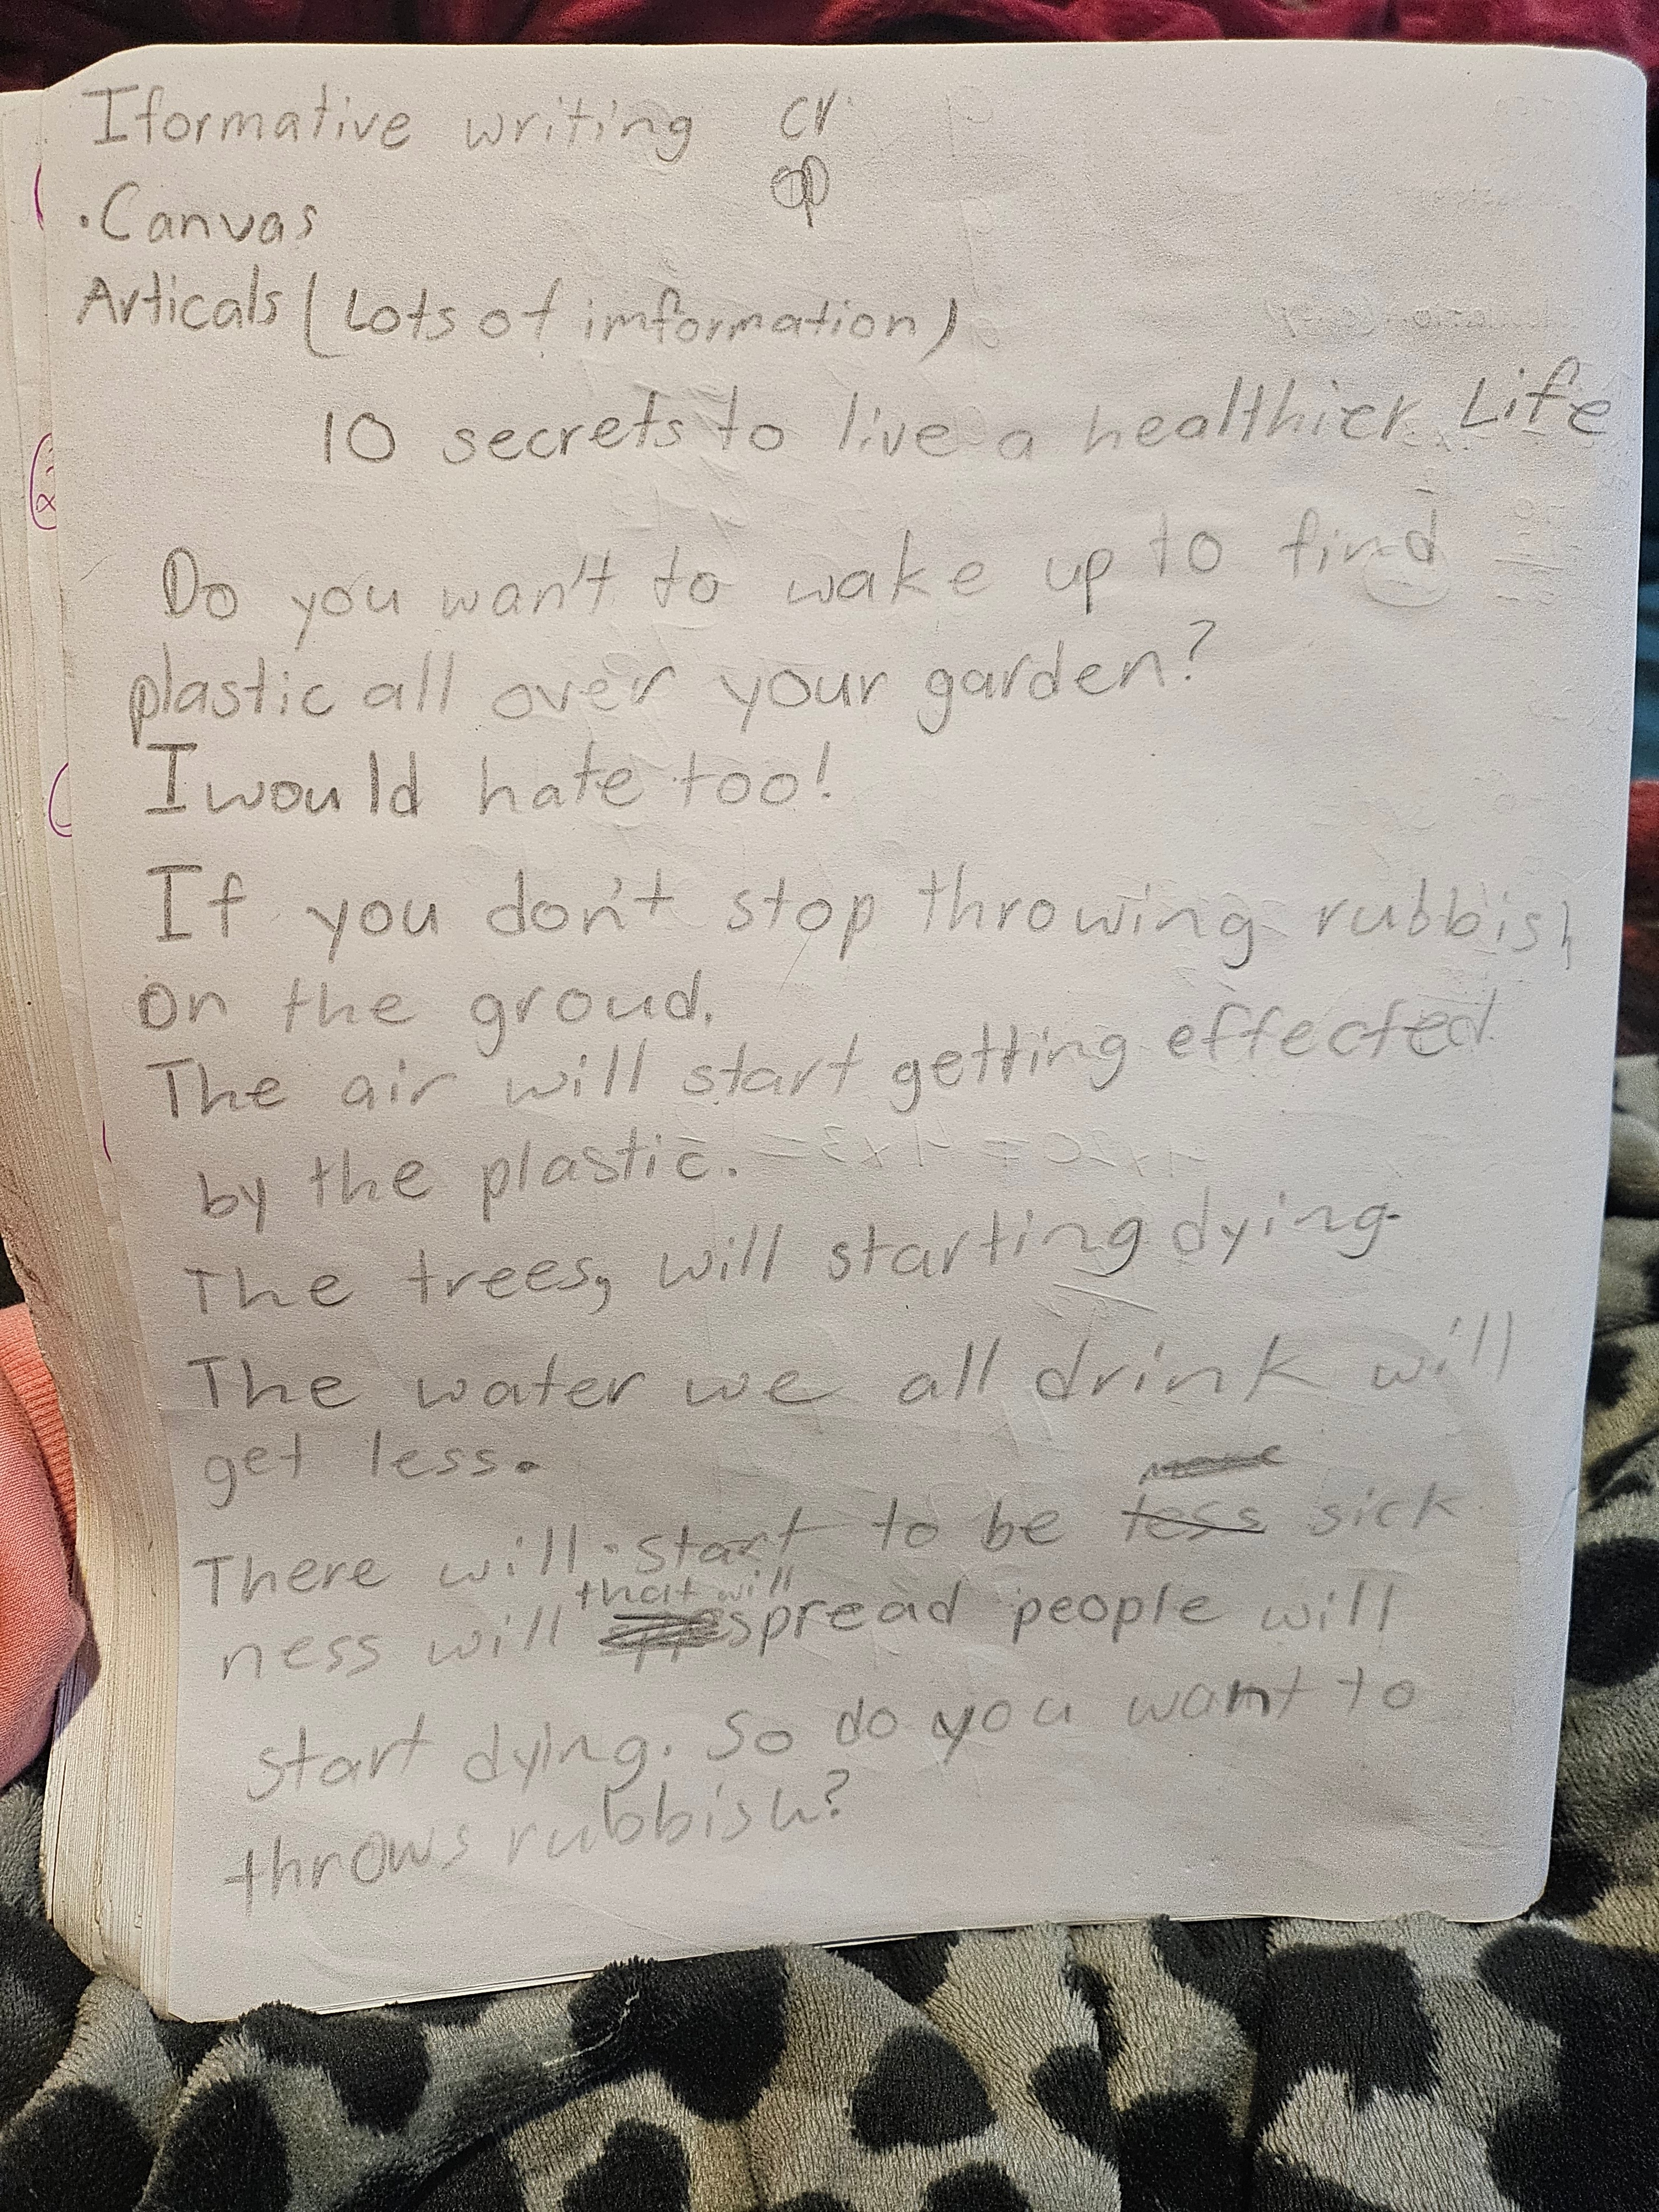 Iformative writing cr
.Canvas
Articals (Lots of imformation)
10 secrets to live a healthier Life
Do you wan't to wake up to find
plastic all over your garden?
I would hate too!
If you don't stop throwing rubbish
on the groud.
The air will start getting effected
by the plastic.
The trees, will starting dying.
The water we all drink will
get less.
There will start to be less sick
that will
ness will spread people will
start dying. So do you want to
throws rubbish?